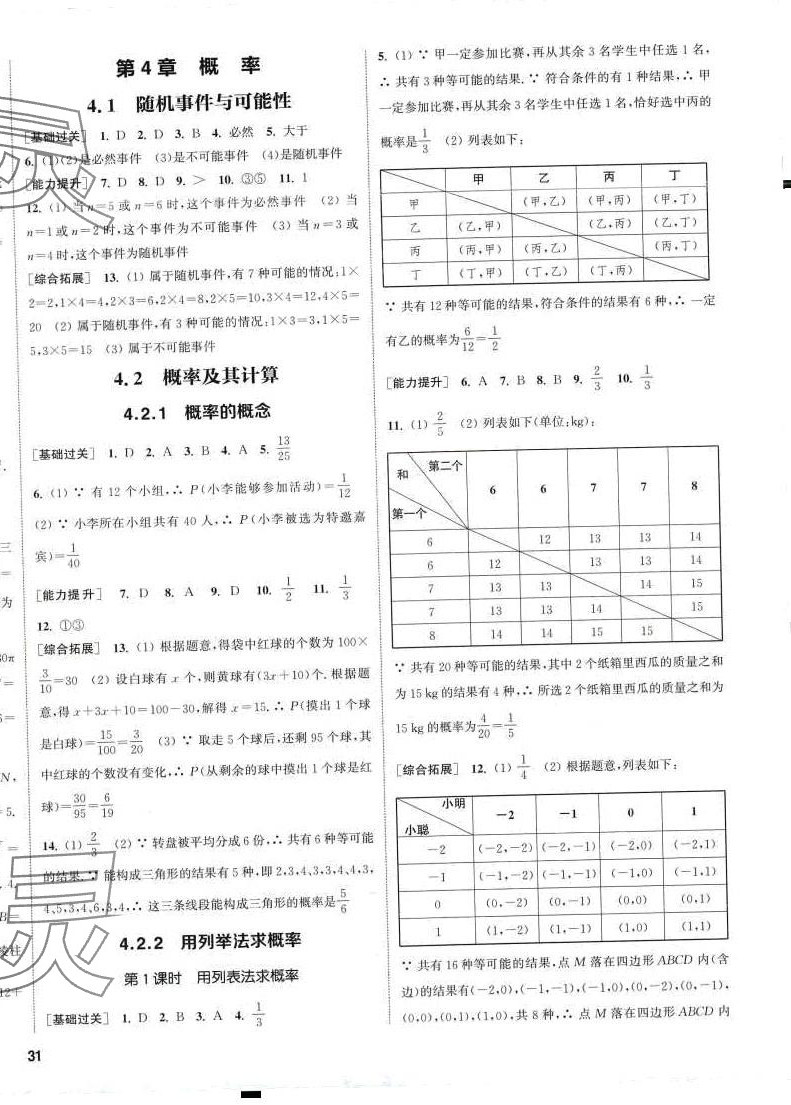 第4章 概 率
4.1 随机事件与可能性
[基础过关] 1. D 2. D 3. B 4. 必然 5. 大于
6. (1)(2)是必然事件 (3)是不可能事件 (4)是随机事件
[能力提升] 7. D 8. D 9. > 10. ③⑤ 11. 1
12. (1)当n=5或n=6时,这个事件为必然事件 (2)当
n=1或n=2时,这个事件为不可能事件 (3)当n=3或
n=4时,这个事件为随机事件
[综合拓展] 13. (1)属于随机事件,有7种可能的情况:1×
2=2,1×4=4,2×3=6,2×4=8,2×5=10,3×4=12,4×5=
20 (2)属于随机事件,有3种可能的情况:1×3=3,1×5=
5,3×5=15 (3)属于不可能事件
4.2 概率及其计算
4.2.1 概率的概念
[基础过关] 1. D 2. A 3. B 4. A 5. 13/25
6. (1)∵有12个小组,∴P(小李能够参加活动)=1/12
(2)∵小李所在小组共有40人,∴P(小李被选为特邀嘉
宾)=1/40
[能力提升] 7. D 8. A 9. D 10. 1/2 11. 1/3
12. ①③
[综合拓展] 13. (1)根据题意,得袋中红球的个数为100×
3/10=30 (2)设白球有x个,则黄球有(3x+10)个.根据题
意,得x+3x+10=100-30,解得x=15.∴P(摸出1个球
是白球)=15/100=3/20 (3)∵取走5个球后,还剩95个球,其
中红球的个数没有变化,∴P(从剩余的球中摸出1个球是红
球)=30/95=6/19
14. (1)2/3 (2)∵转盘被平均分成6份,∴共有6种等可能
的结果.∵能构成三角形的结果有5种,即2,3,4,3,3,4,4,3,
4,5,3,4,6,3,4,∴这三条线段能构成三角形的概率是5/6
4.2.2 用列举法求概率
第1课时 用列表法求概率
[基础过关] 1. D 2. B 3. A 4. 1/3
31
5. (1)∵甲一定参加比赛,再从其余3名学生中任选1名,
∴共有3种等可能的结果.∵符合条件的有1种结果,∴甲
一定参加比赛,再从其余3名学生中任选1名,恰好选中丙的
概率是1/3 (2)列表如下:
甲 乙 丙 丁
甲 (甲,乙) (甲,丙) (甲,丁)
乙 (乙,甲) (乙,丙) (乙,丁)
丙 (丙,甲) (丙,乙) (丙,丁)
丁 (丁,甲) (丁,乙) (丁,丙)
∵共有12种等可能的结果,符合条件的结果有6种,∴一定
有乙的概率为6/12=1/2
[能力提升] 6. A 7. B 8. B 9. 2/3 10. 1/3
11. (1)2/5 (2)列表如下(单位:kg):
和 第二个 6 6 7 7 8
第一个
6 12 13 13 14
6 12 13 13 14
7 13 13 14 15
7 13 13 14 15
8 14 14 15 15
∵共有20种等可能的结果,其中2个纸箱里西瓜的质量之和
为15 kg的结果有4种,∴所选2个纸箱里西瓜的质量之和为
15 kg的概率为4/20=1/5
[综合拓展] 12. (1)1/4 (2)根据题意,列表如下:
小明 -2 -1 0 1
小聪
-2 (-2,-2) (-2,-1) (-2,0) (-2,1)
-1 (-1,-2) (-1,-1) (-1,0) (-1,1)
0 (0,-2) (0,-1) (0,0) (0,1)
1 (1,-2) (1,-1) (1,0) (1,1)
∵共有16种等可能的结果,点M落在四边形ABCD内(含
边)的结果有(-2,0),(-1,-1),(-1,0),(0,-2),(0,-1),
(0,0),(0,1),(1,0),共8种,∴点M落在四边形ABCD内